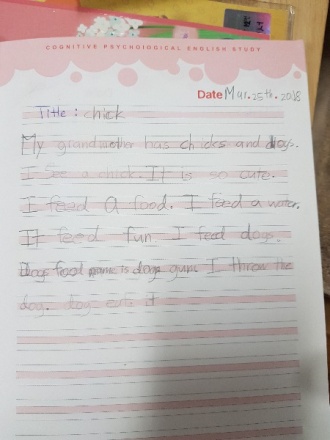 COGNITIVE PSYCHOLOGICAL ENGLISH STUDY
Date Mar. 25th. 2018
Title : chick
My grandmother has chicks and dogs.
I see a chick. It is so cute.
I feed a food. I feed a water.
It feed fun. I feed dogs.
Dogs food name is dogs gum. I throw the
dog. dog eats it